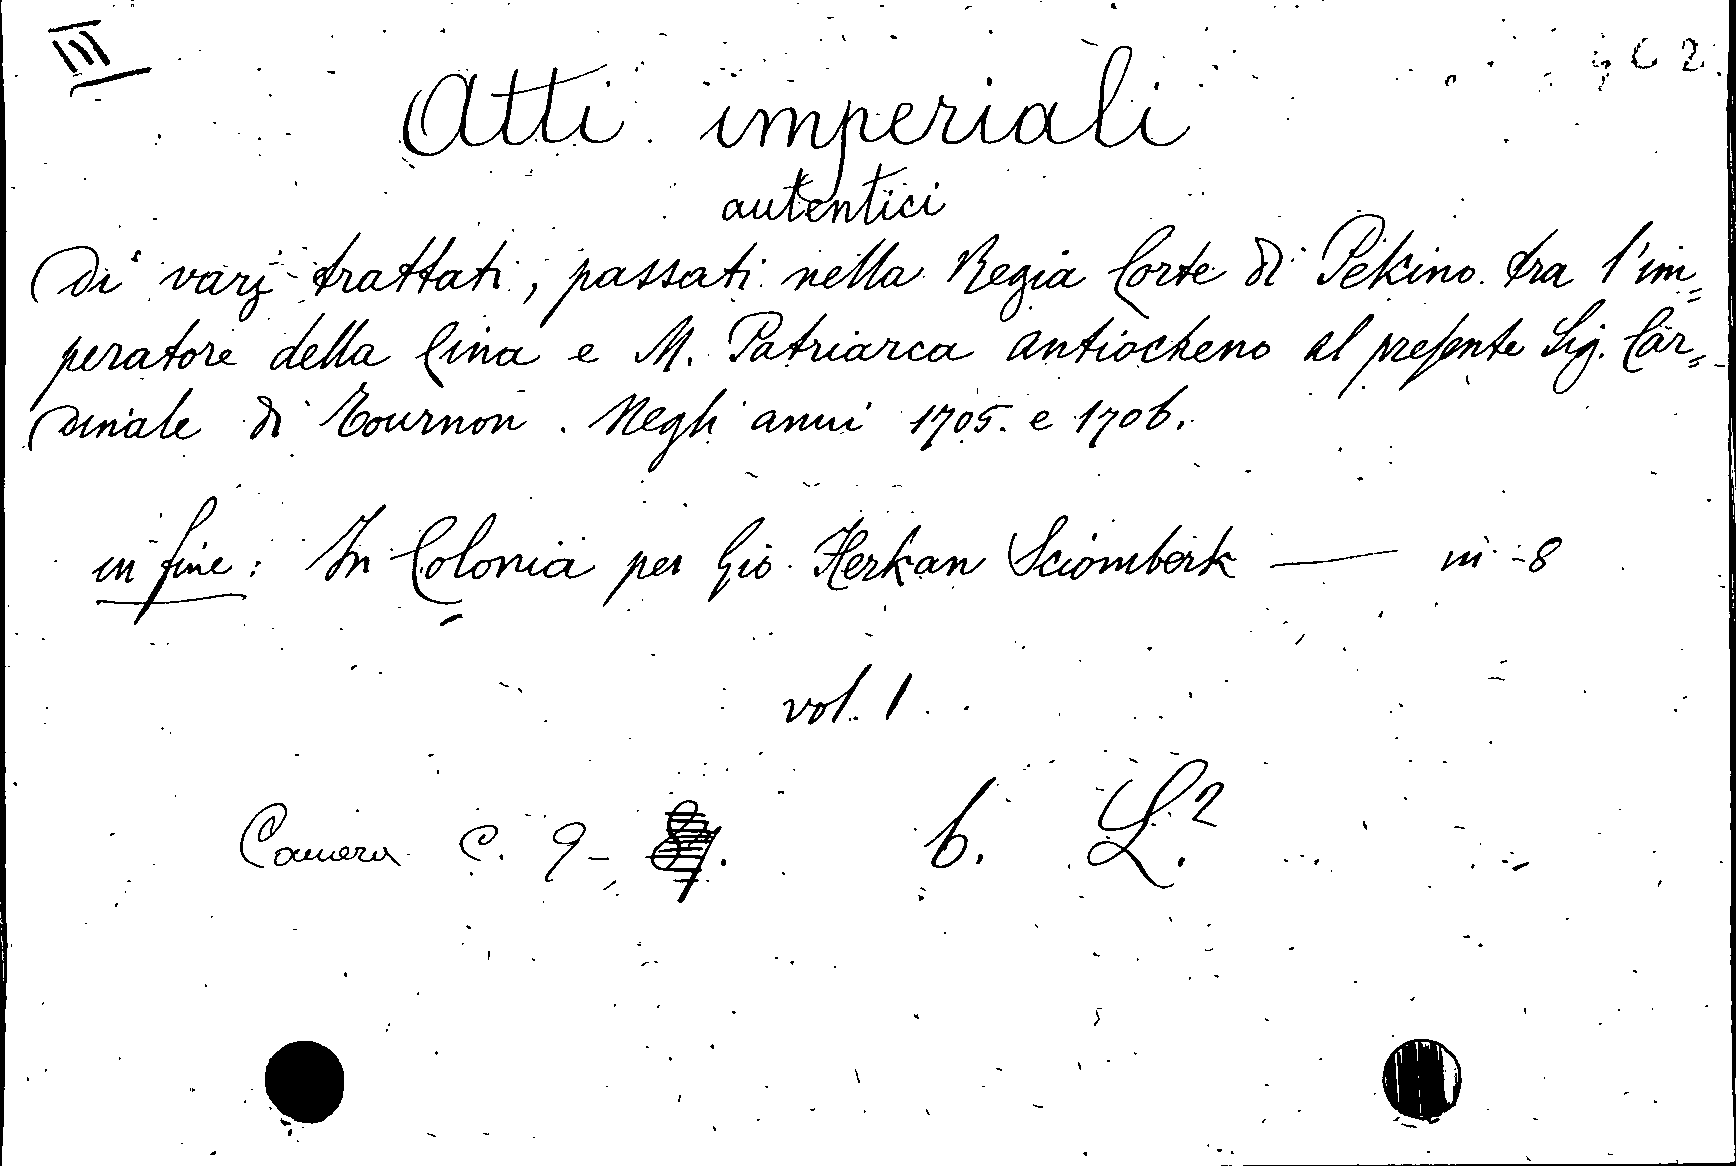 III
Atti imperiali
autentici
Di varj trattati, passati nella Regia Corte di Pekino tra l'im=
peratore della Cina e M. Patriarca antiocheno al presente Sig. Car=
dinale di Tournon. Negli anni 1705. e 1706.
in fine: In Colonia per Gio. Herkan Sciomberk — in-8
vol. 1
Camera C. 9- b. L.2